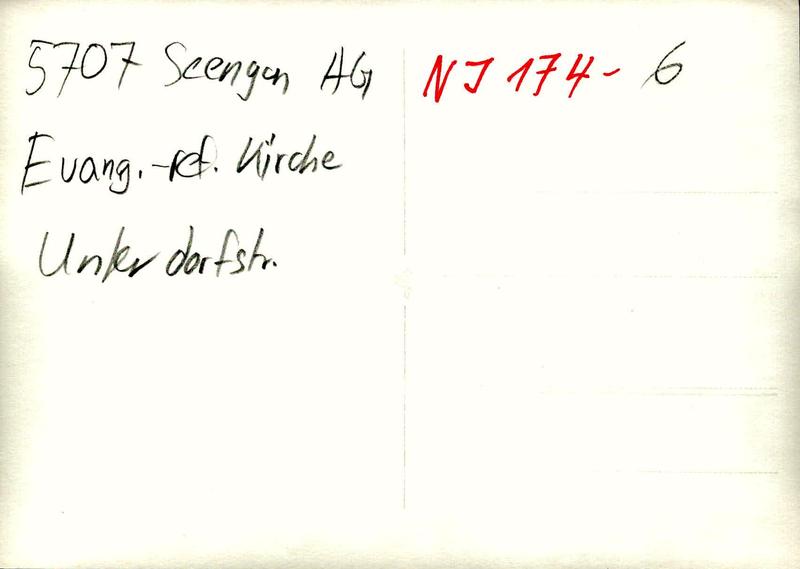 5707 Seengen AG
Evang.-ref. Kirche
Unterdorfstr.
NJ 174-6